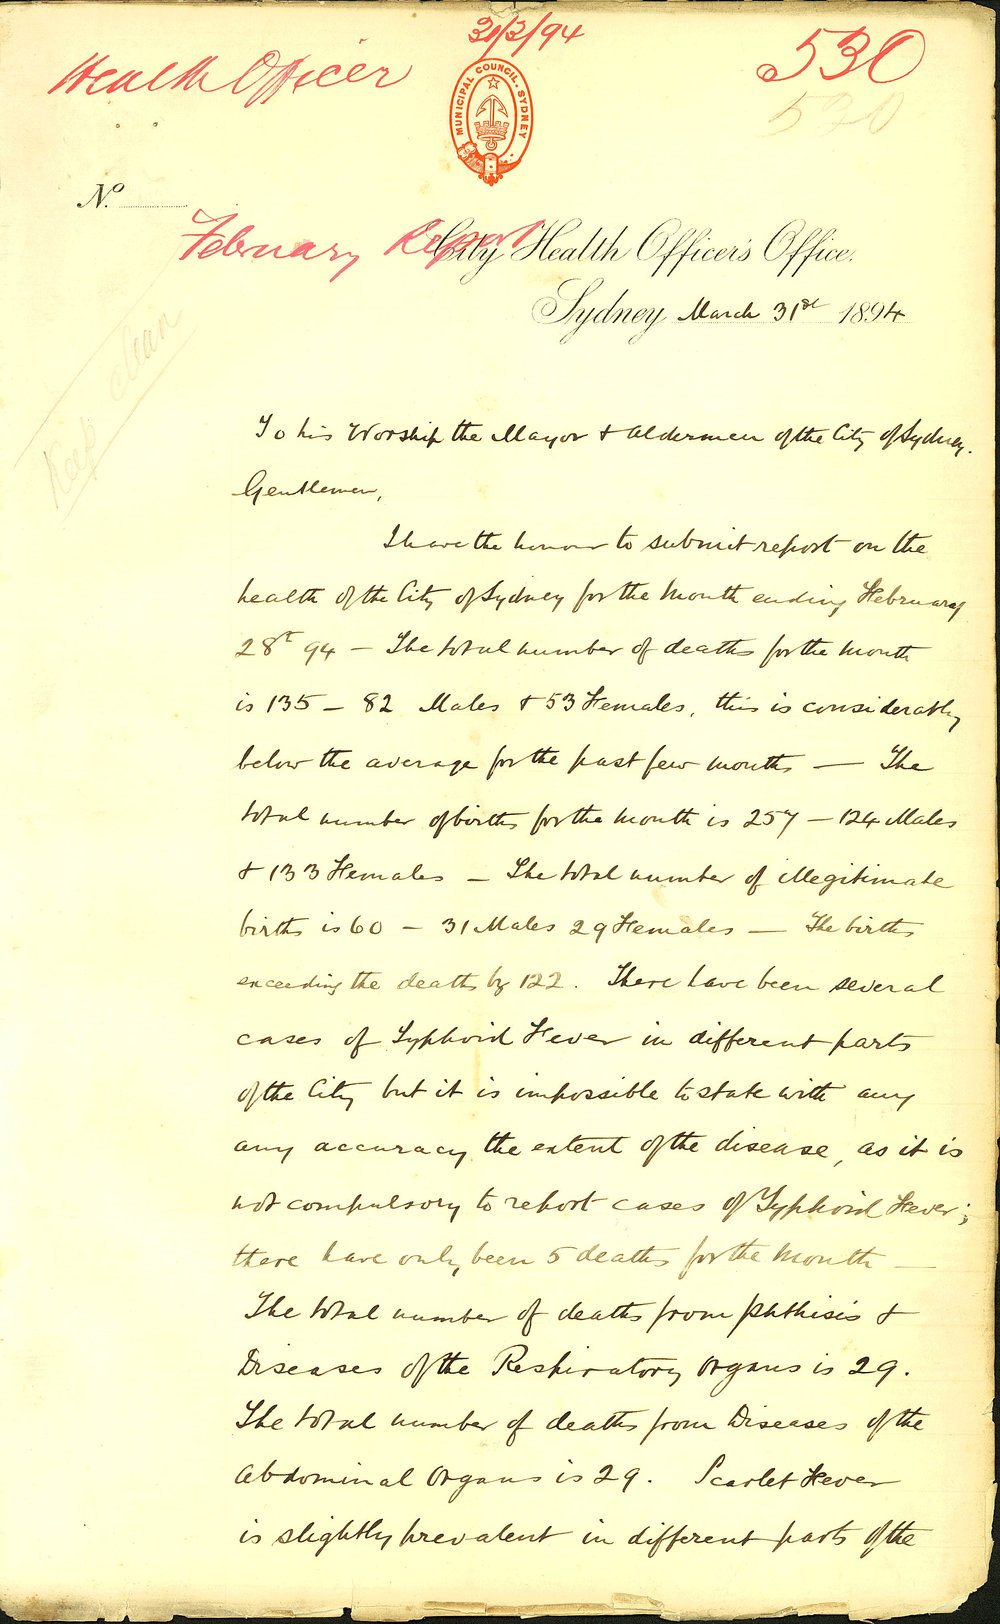 31/3/94
Health Officer
530
530
MUNICIPAL COUNCIL. SYDNEY
No.
February Report
City Health Officer's Office.
Sydney March 31st 1894
Keep clean
To his Worship the Mayor & Aldermen of the City of Sydney.
Gentlemen,
I have the honour to submit report on the
health of the City of Sydney for the Month ending February
28t 94 – The total number of deaths for the month
is 135 – 82 Males & 53 Females, this is considerably
below the average for the past few months — The
total number of births for the month is 257 – 124 Males
& 133 Females – The total number of illegitimate
births is 60 – 31 Males 29 Females — The births
exceeding the deaths by 122. There have been several
cases of Typhoid Fever in different parts
of the City but it is impossible to state with any
any accuracy the extent of the disease, as it is
not compulsory to report cases of Typhoid Fever;
there have only been 5 deaths for the Month —
The total number of deaths from Phthisis &
Diseases of the Respiratory organs is 29.
The total number of deaths from Diseases of the
Abdominal Organs is 29. Scarlet Fever
is slightly prevalent in different parts of the